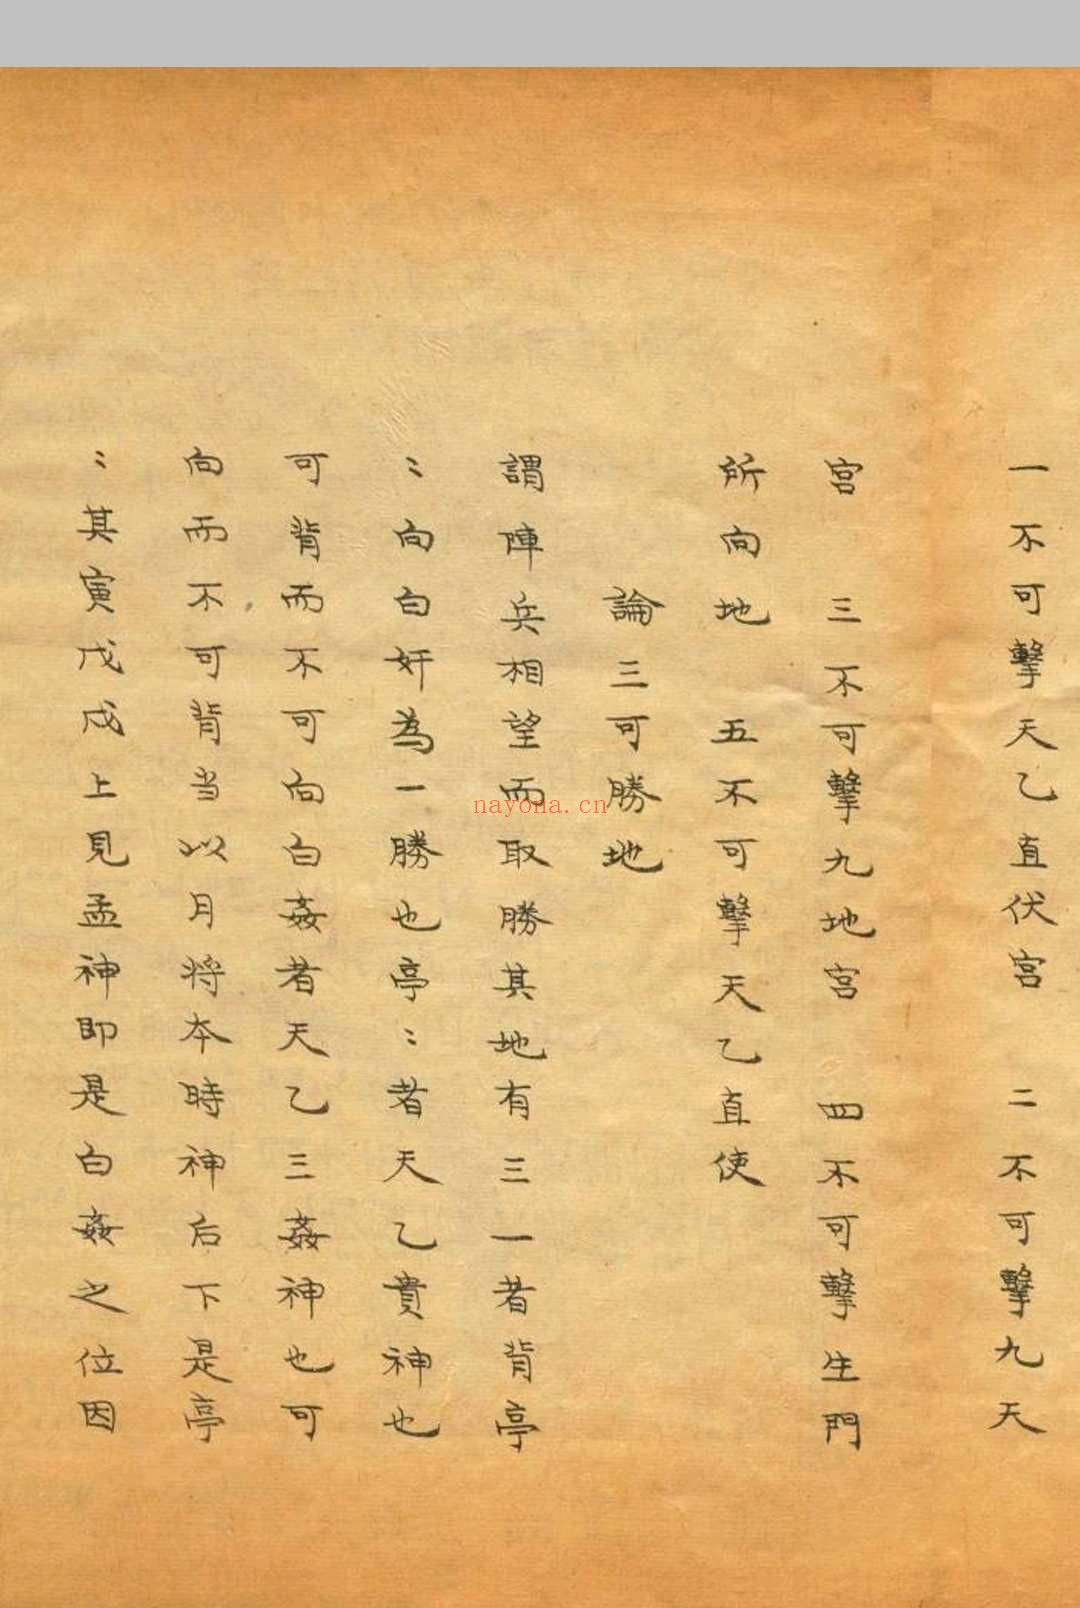 一不可擊天乙直伏宮　二不可擊九天
宮　三不可擊九地宮　四不可擊生門
所向地　五不可擊天乙直使
論三可勝地
謂陣兵相望而取勝其地有三一者背亭
〻向白奸為一勝也亭〻者天乙貴神也
可背而不可向白姦者天乙三姦神也可
向而不可背当以月将本時神后下是亭
〻其寅戊戌上見孟神即是白姦之位因
nayona.cn